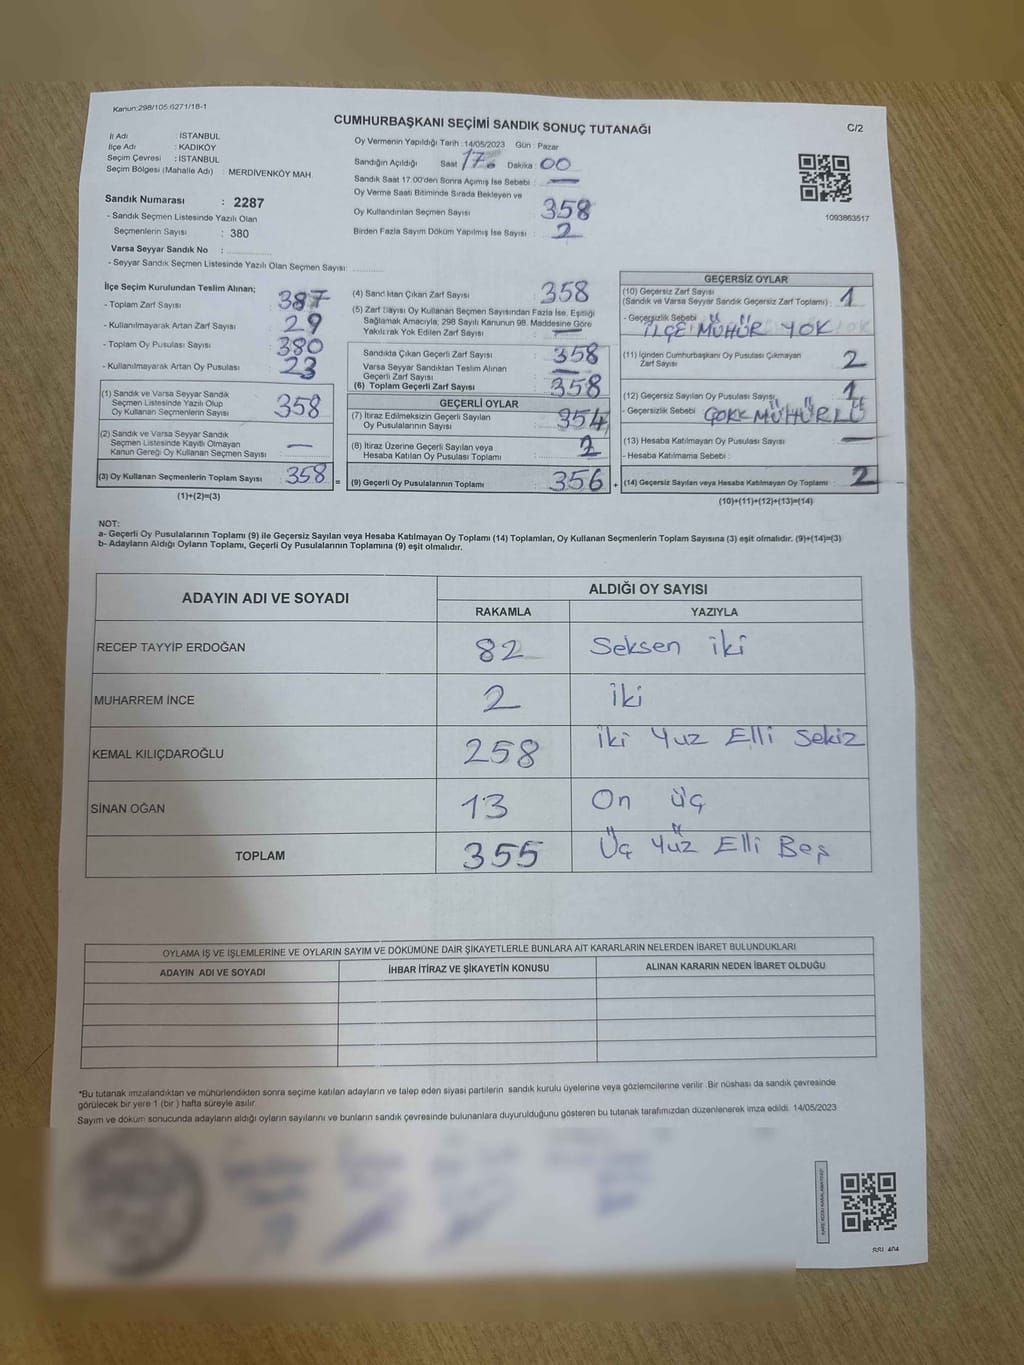 Kanun:298/105 6271/18-1
CUMHURBAŞKANI SEÇİMİ SANDIK SONUÇ TUTANAĞI
C/2
İl Adı : İSTANBUL
İlçe Adı : KADIKÖY
Seçim Çevresi : İSTANBUL
Seçim Bölgesi (Mahalle Adı) : MERDİVENKÖY MAH.
Sandık Numarası : 2287
- Sandık Seçmen Listesinde Yazılı Olan
Seçmenlerin Sayısı : 380
Varsa Seyyar Sandık No :
- Seyyar Sandık Seçmen Listesinde Yazılı Olan Seçmen Sayısı:
Oy Vermenin Yapıldığı Tarih :14/05/2023 Gün : Pazar
Sandığın Açıldığı Saat 17. Dakika : 00
Sandık Saat 17.00'den Sonra Açımış İse Sebebi : —
Oy Verme Saati Bitiminde Sırada Bekleyen ve
Oy Kullandırılan Seçmen Sayısı : 358
Birden Fazla Sayım Döküm Yapılmış İse Sayısı : 2
1093863517
İlçe Seçim Kurulundan Teslim Alınan;
- Toplam Zarf Sayısı : 387
- Kullanılmayarak Artan Zarf Sayısı : 29
- Toplam Oy Pusulası Sayısı : 380
- Kullanılmayarak Artan Oy Pusulası : 23
(1) Sandık ve Varsa Seyyar Sandık
Seçmen Listesinde Yazılı Olup
Oy Kullanan Seçmenlerin Sayısı : 358
(2) Sandık ve Varsa Seyyar Sandık
Seçmen Listesinde Kayıtlı Olmayan
Kanun Gereği Oy Kullanan Seçmen Sayısı : —
(3) Oy Kullanan Seçmenlerin Toplam Sayısı : 358
(1)+(2)=(3)
=
(4) Sandıktan Çıkan Zarf Sayısı : 358
(5) Zarf Sayısı Oy Kullanan Seçmen Sayısından Fazla İse, Eşitliği
Sağlamak Amacıyla, 298 Sayılı Kanunun 98. Maddesine Göre
Yakılarak Yok Edilen Zarf Sayısı : —
Sandıkta Çıkan Geçerli Zarf Sayısı : 358
Varsa Seyyar Sandıktan Teslim Alınan
Geçerli Zarf Sayısı : —
(6) Toplam Geçerli Zarf Sayısı : 358
GEÇERLİ OYLAR
(7) İtiraz Edilmeksizin Geçerli Sayılan
Oy Pusulalarının Sayısı : 354
(8) İtiraz Üzerine Geçerli Sayılan veya
Hesaba Katılan Oy Pusulası Toplamı : 2
(9) Geçerli Oy Pusulalarının Toplamı : 356
+
GEÇERSİZ OYLAR
(10) Geçersiz Zarf Sayısı
(Sandık ve Varsa Seyyar Sandık Geçersiz Zarf Toplamı) : 1
- Geçersizlik Sebebi : İLÇE MÜHÜR YOK
(11) İçinden Cumhurbaşkanı Oy Pusulası Çıkmayan
Zarf Sayısı : 2
(12) Geçersiz Sayılan Oy Pusulası Sayısı : 1
- Geçersizlik Sebebi ÇOKK MÜHÜRLÜ
(13) Hesaba Katılmayan Oy Pusulası Sayısı : —
- Hesaba Katılmama Sebebi :
(14) Geçersiz Sayılan veya Hesaba Katılmayan Oy Toplamı : 2
(10)+(11)+(12)+(13)=(14)
NOT:
a- Geçerli Oy Pusulalarının Toplamı (9) ile Geçersiz Sayılan veya Hesaba Katılmayan Oy Toplamı (14) Toplamları, Oy Kullanan Seçmenlerin Toplam Sayısına (3) eşit olmalıdır. (9)+(14)=(3)
b- Adayların Aldığı Oyların Toplamı, Geçerli Oy Pusulalarının Toplamına (9) eşit olmalıdır.
ADAYIN ADI VE SOYADI
ALDIĞI OY SAYISI
RAKAMLA YAZIYLA
RECEP TAYYİP ERDOĞAN 82 Seksen iki
MUHARREM İNCE 2 iki
KEMAL KILIÇDAROĞLU 258 iki Yuz Elli Sekiz
SİNAN OĞAN 13 On üç
TOPLAM 355 Üç Yüz Elli Beş
OYLAMA İŞ VE İŞLEMLERİNE VE OYLARIN SAYIM VE DÖKÜMÜNE DAİR ŞİKAYETLERLE BUNLARA AİT KARARLARIN NELERDEN İBARET BULUNDUKLARI
ADAYIN ADI VE SOYADI İHBAR İTİRAZ VE ŞİKAYETİN KONUSU ALINAN KARARIN NEDEN İBARET OLDUĞU
*Bu tutanak imzalandıktan ve mühürlendikten sonra seçime katılan adayların ve talep eden siyasi partilerin sandık kurulu üyelerine veya gözlemcilerine verilir .Bir nüshası da sandık çevresinde
görülecek bir yere 1 (bir ) hafta süreyle asılır.
Sayım ve döküm sonucunda adayların aldığı oyların sayılarını ve bunların sandık çevresinde bulunanlara duyurulduğunu gösteren bu tutanak tarafımızdan düzenlenerek imza edildi. 14/05/2023
SSI_404